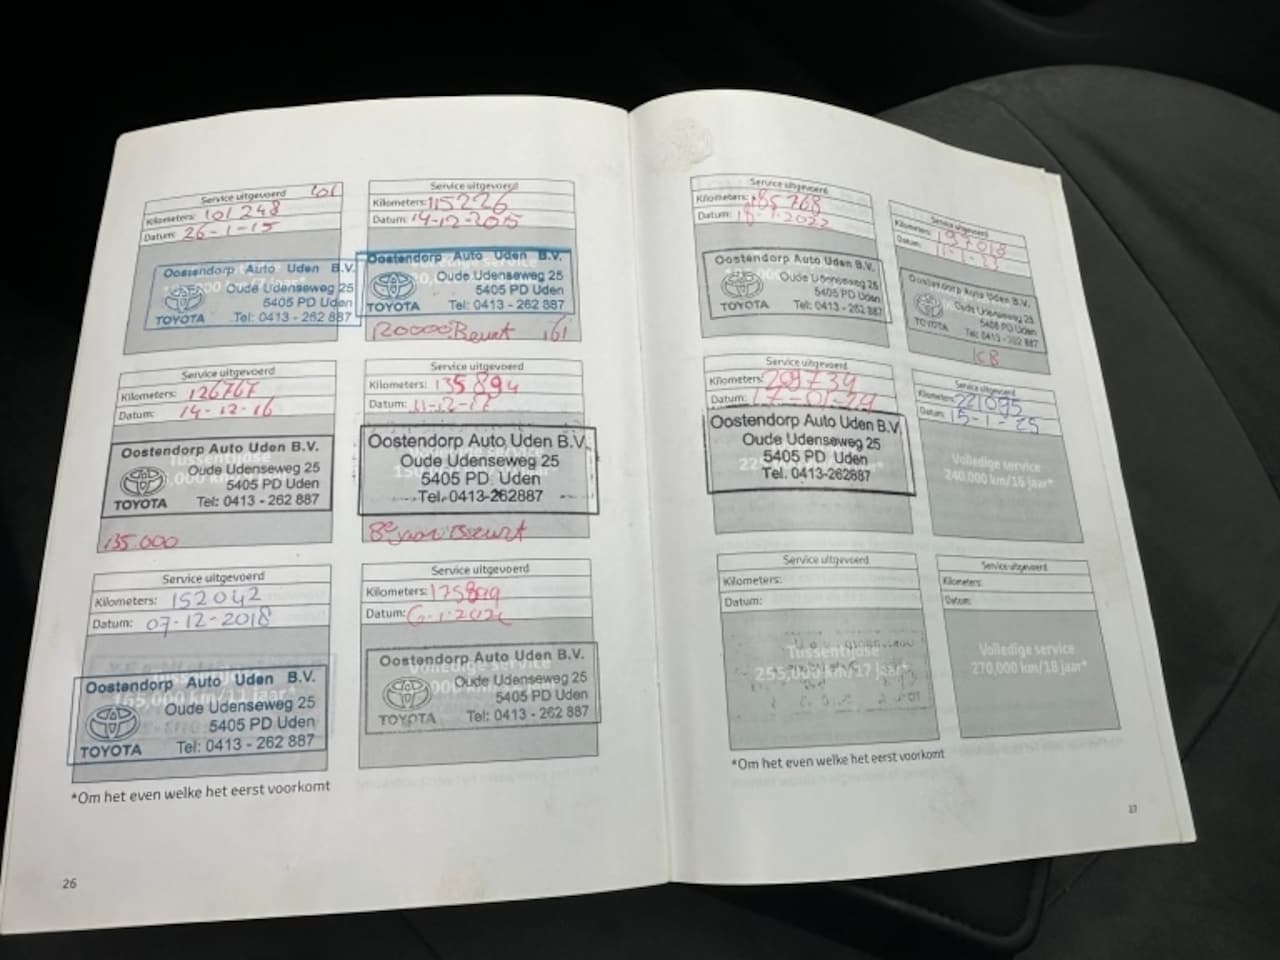 Service uitgevoerd 101
Kilometers: 101248
Datum: 26-1-15
Oostendorp Auto Uden B.V.
Oude Udenseweg 25
5405 PD Uden
TOYOTA Tel: 0413 - 262 887
Service uitgevoerd
Kilometers: 115226
Datum: 14-12-2015
Oostendorp Auto Uden B.V.
Oude Udenseweg 25
5405 PD Uden
TOYOTA Tel: 0413 - 262 887
120000 Beurt 161
Service uitgevoerd
Kilometers: 126767
Datum: 14-12-16
Oostendorp Auto Uden B.V.
Tussentijdse
Oude Udenseweg 25
000 km/
5405 PD Uden
TOYOTA Tel: 0413 - 262 887
135.000
Service uitgevoerd
Kilometers: 135894
Datum: 11-12-17
Oostendorp Auto Uden B.V.
Oude Udenseweg 25
5405 PD Uden
Tel. 0413-262887
8e jaar Beurt
Service uitgevoerd
Kilometers: 152042
Datum: 07-12-2018
Oostendorp Auto Uden B.V.
165,000 km/11 jaar*
Oude Udenseweg 25
5405 PD Uden
TOYOTA Tel: 0413 - 262 887
Service uitgevoerd
Kilometers: 175899
Datum: 6-1-202
Oostendorp Auto Uden B.V.
Volledige service
Oude Udenseweg 25
5405 PD Uden
TOYOTA Tel: 0413 - 262 887
*Om het even welke het eerst voorkomt
26
Service uitgevoerd
Kilometers: 185768
Datum: 18-1-2022
Oostendorp Auto Uden B.V.
Oude Udenseweg 25
5405 PD Uden
TOYOTA Tel: 0413 - 262 887
Service uitgevoerd
Kilometers: 197018
Datum:
Oostendorp Auto Uden B.V.
Oude Udenseweg 25
5405 PD Uden
TOYOTA Tel: 0413 - 262 887
KB
Service uitgevoerd
Kilometers: 209739
Datum: 17-01-24
Oostendorp Auto Uden B.V.
Oude Udenseweg 25
5405 PD Uden
Tel. 0413-262887
Service uitgevoerd
Kilometers: 221095
Datum: 15-1-25
Volledige service
240,000 km/16 jaar*
Service uitgevoerd
Kilometers:
Datum:
Tussentijdse
255,000 km/17 jaar*
Service uitgevoerd
Kilometers:
Datum:
Volledige service
270,000 km/18 jaar*
*Om het even welke het eerst voorkomt
27